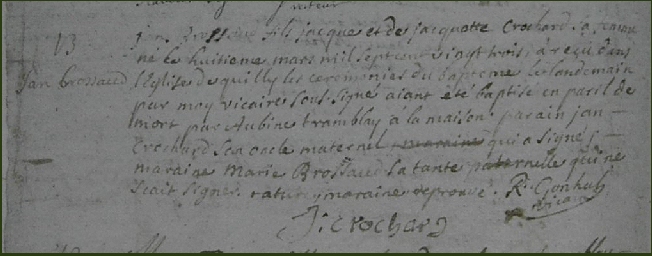 13
jan Brossaud
jan Brossaud fils jacque et de jacquotte Crochard sa femme
né le huitieme mars mil sept cent vingt trois, a reçu dans
l'Eglise de quilly les ceremonies du bapteme le landemain
par moy vicaire sous signé aiant été baptisé en paril de
mort par Aubine tramblay a la maison. parain jan
Crochard sea oncle maternel maraine qui a signé;
maraine Marie Brossaud sa tante paternelle qui ne
scait signer. rature maraine deprouve. R. Gonhah
vicaire
J: Crochard